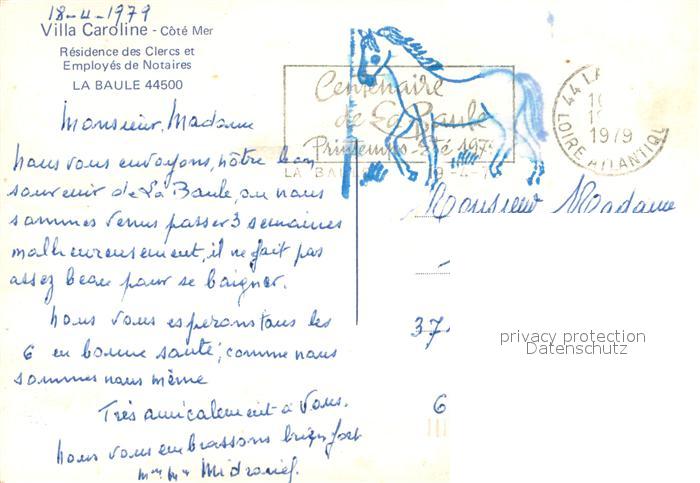 18-4-1979
Villa Caroline - Côté Mer
Résidence des Clercs et
Employés de Notaires
LA BAULE 44500
Monsieur, Madame
nous vous envoyons, nôtre bon
souvenir de La Baule, ou nous
sommes venus passer 3 semaines
malheureusement, il ne fait pas
assez beau pour se baigner.
nous vous esperons tous les
6 en bonne santé; comme nous
sommes nous même
Très amicalement à Vous.
nous vous embrassons bien fort
Centenaire
de La Baule
Printemps-Eté 197
LA BAU
19-4-7
44 LA
1979
LOIRE ATLANTIQUE
Monsieur Madame
37
6
privacy protection
Datenschutz